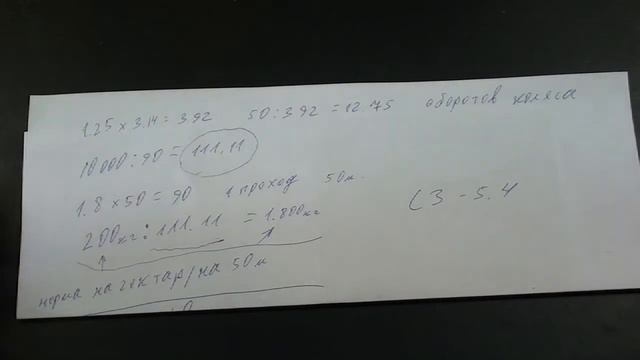 1.25 × 3.14 = 392 50 : 392 = 12.75 оборотов колеса
10000 : 90 = 111.11
1.8 × 50 = 90 1 проход 50 м.
200 кг : 111.11 = 1.800 кг
СЗ - 5.4
норма на гектар / на 50 м